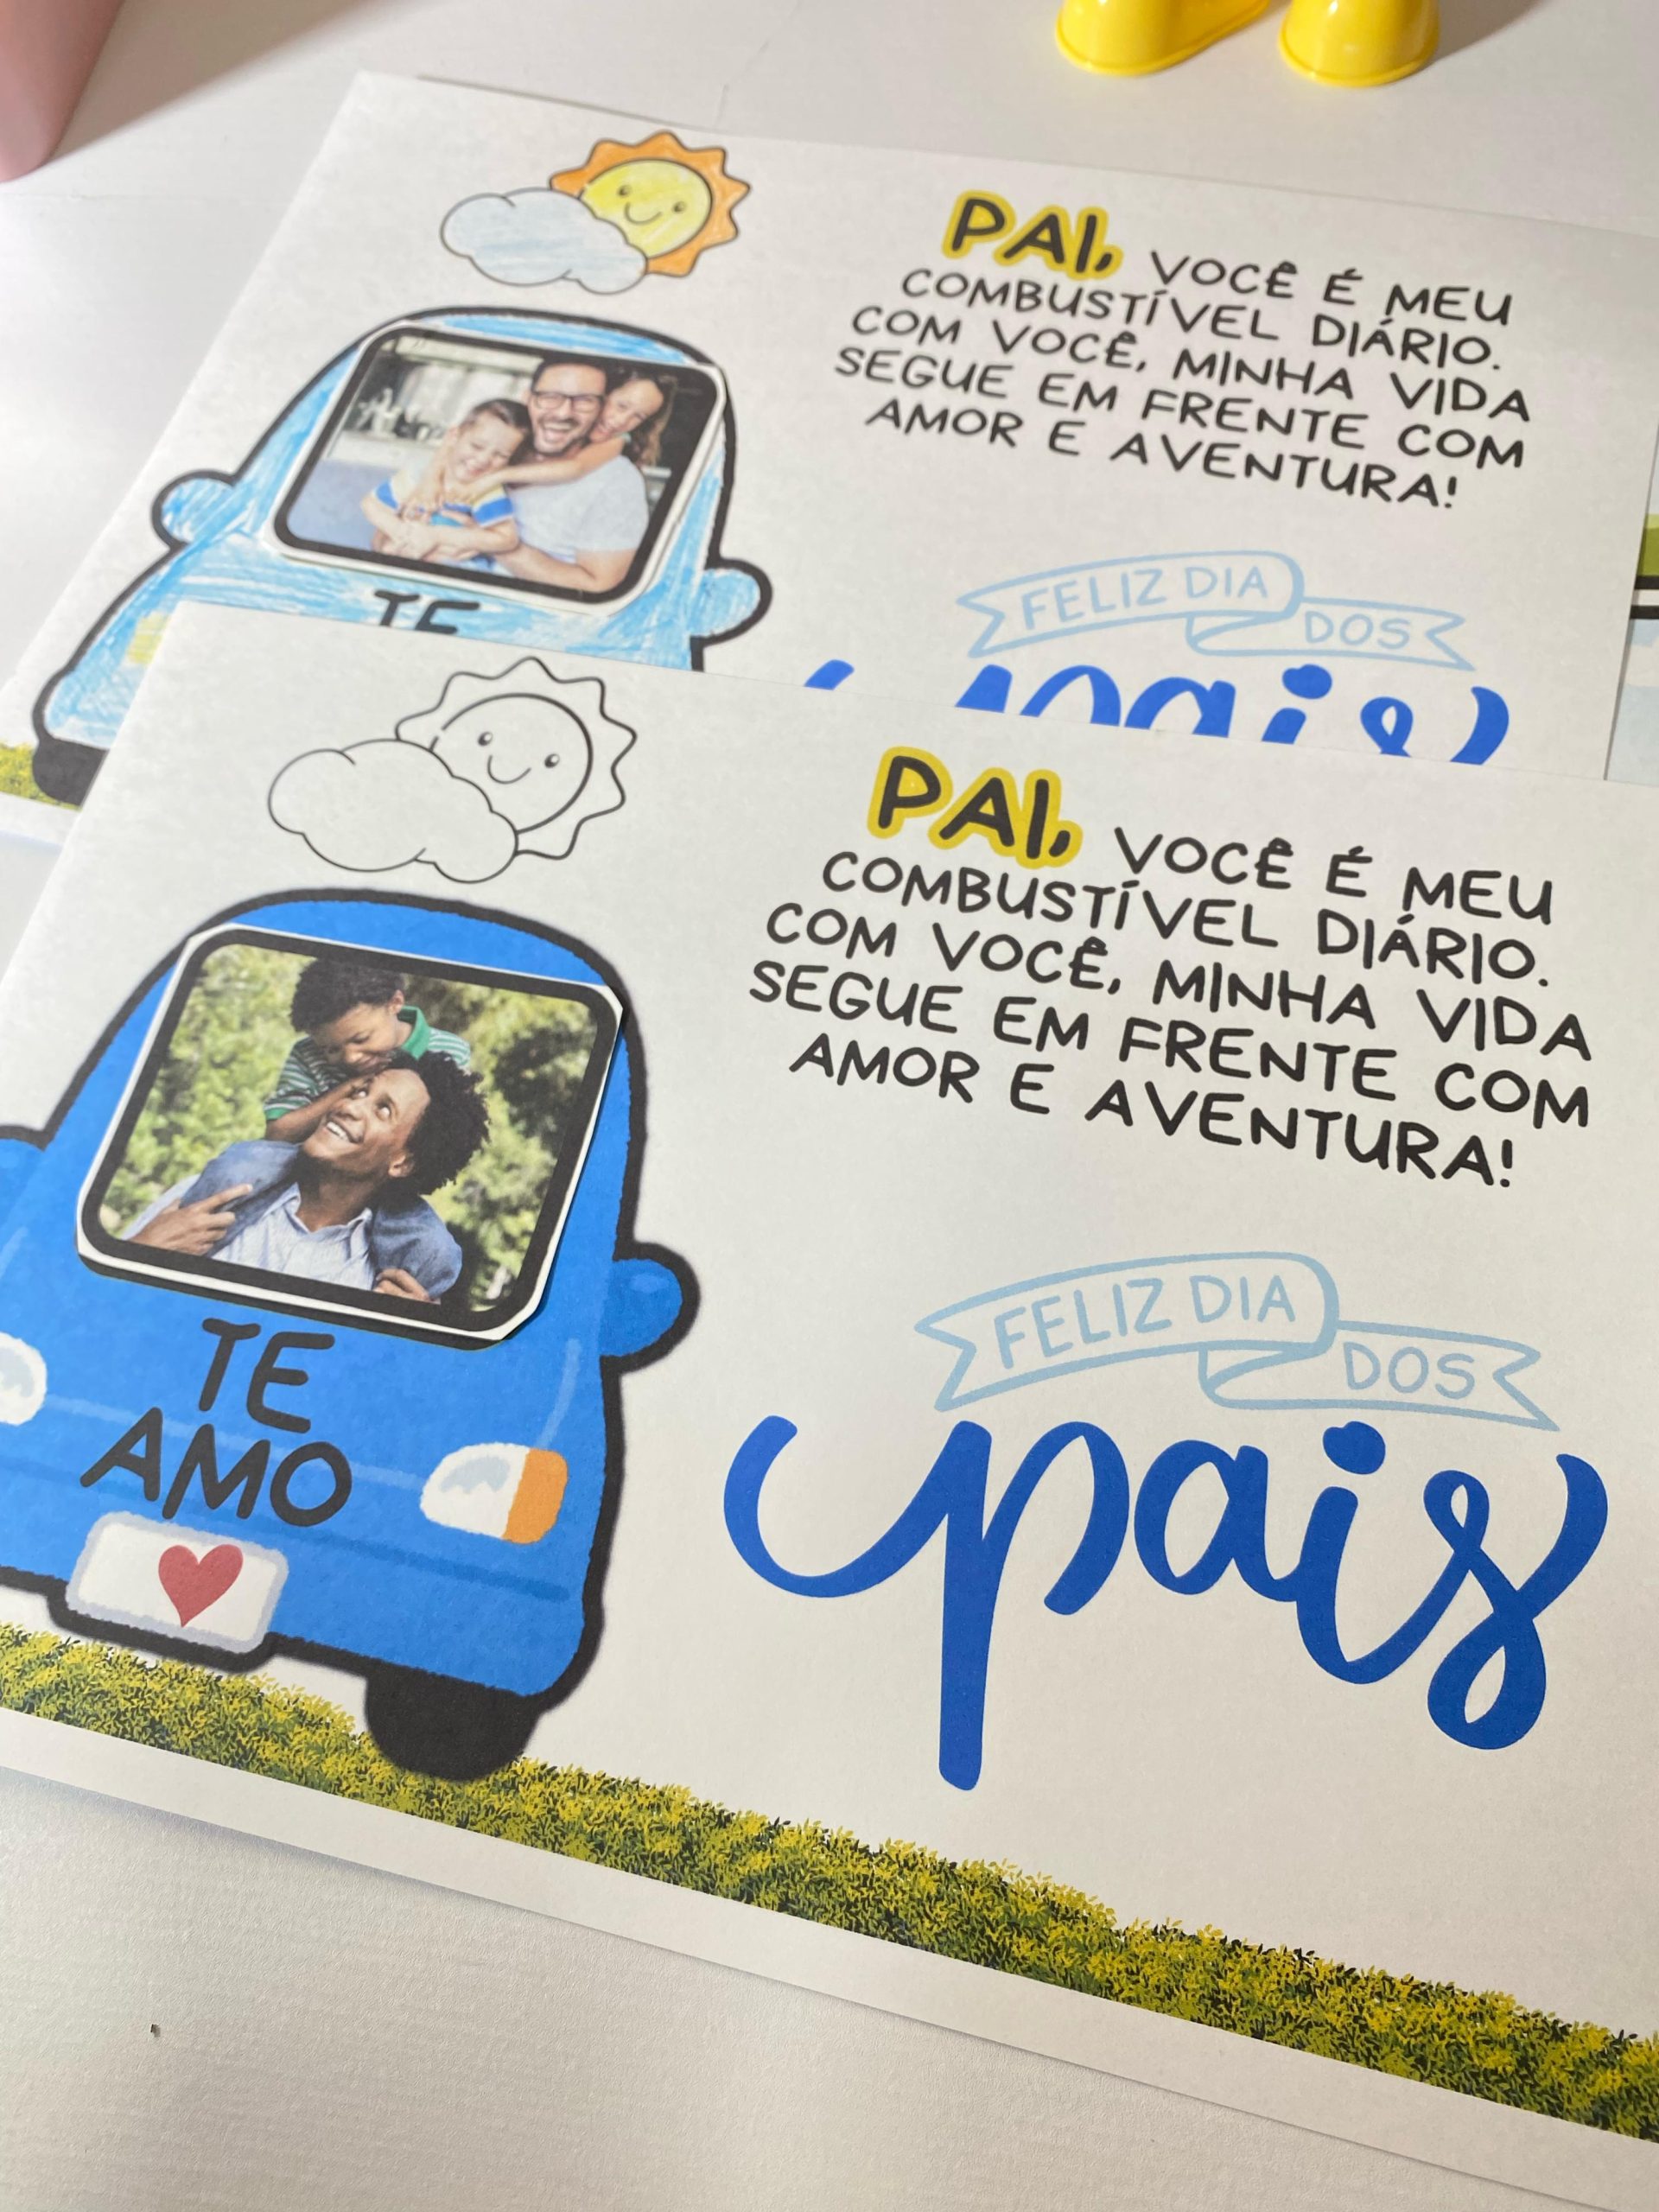 PAI, VOCÊ É MEU
COMBUSTÍVEL DIÁRIO.
COM VOCÊ, MINHA VIDA
SEGUE EM FRENTE COM
AMOR E AVENTURA!
TE
FELIZ DIA
DOS
pais
PAI, VOCÊ É MEU
COMBUSTÍVEL DIÁRIO.
COM VOCÊ, MINHA VIDA
SEGUE EM FRENTE COM
AMOR E AVENTURA!
TE
AMO
FELIZ DIA
DOS
pais